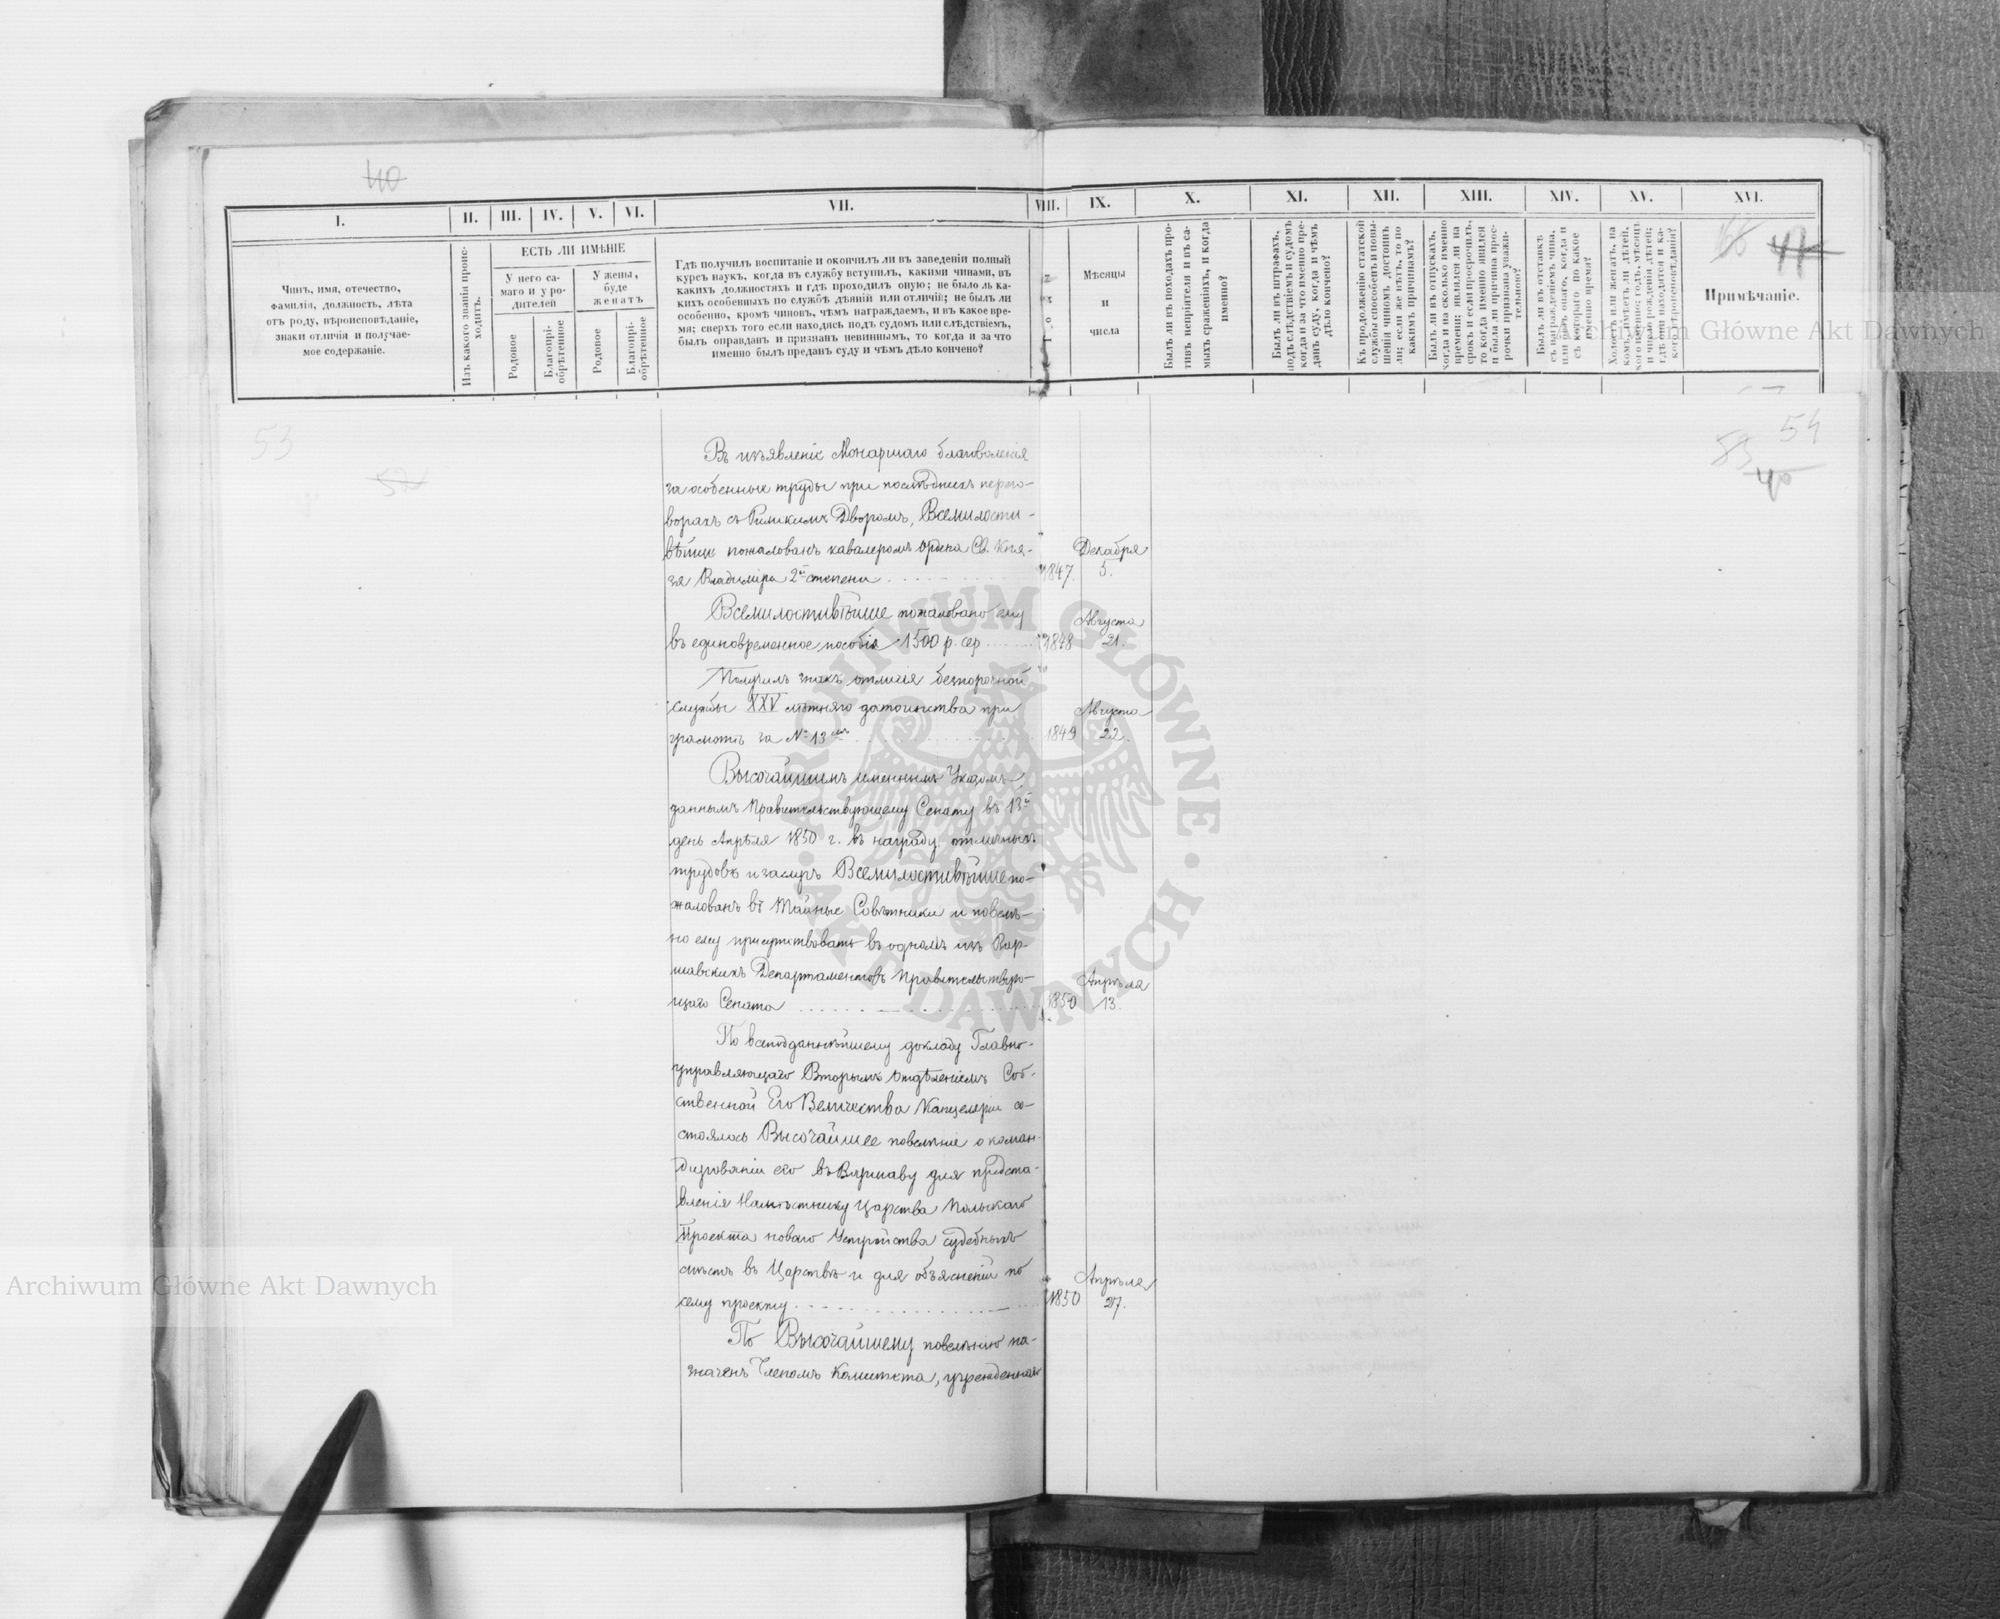 40
I.
II.
III.
IV.
V.
VI.
VII.
VIII.
IX.
X.
XI.
XII.
XIII.
XIV.
XV.
XVI.
Чинъ, имя, отечество,
фамилія, должность, лѣта
отъ роду, вѣроисповѣданіе,
знаки отличія и получае-
мое содержаніе.
Изъ какого званія проис-
ходитъ.
ЕСТЬ ЛИ ИМѢНІЕ
У него са-
маго и у ро-
дителей
У жены,
буде
женатъ
Родовое
Благопрі-
обрѣтенное
Родовое
Благопрі-
обрѣтенное
Гдѣ получилъ воспитаніе и окончилъ ли въ заведеніи полный
курсъ наукъ, когда въ службу вступилъ, какими чинами, въ
какихъ должностяхъ и гдѣ проходилъ оную; не было ль ка-
кихъ особенныхъ по службѣ дѣяній или отличій; не былъ ли
особенно, кромѣ чиновъ, чѣмъ награждаемъ, и въ какое вре-
мя; сверхъ того если находясь подъ судомъ или слѣдствіемъ,
былъ оправданъ и признанъ невиннымъ, то когда и за что
именно былъ преданъ суду и чѣмъ дѣло кончено?
Мѣсяцы
и
числа
Былъ ли въ походахъ про-
тивъ непріятеля и въ са-
мыхъ сраженіяхъ, и когда
именно?
Былъ ли въ штрафахъ,
подъ слѣдствіемъ и судомъ
когда и за что именно пре-
данъ суду, когда и чѣмъ
дѣло кончено?
Къ продолженію статской
службы способенъ и повы-
шенія чиномъ достоинъ
ли; если же нѣтъ, то по
какимъ причинамъ?
Былъ ли въ отпускахъ,
когда и на сколько именно
времени; явился ли на
срокъ и если просрочилъ,
то когда именно явился
и была ли причина прос-
рочки признана уважи-
тельною?
Былъ ли въ отставкѣ
съ награжденіемъ чина,
или безъ онаго, когда и
съ котораго по какое
именно время?
Холостъ или женатъ, на
комъ, имѣетъ ли дѣтей,
кого именно; годъ, мѣсяцъ
и число рожденія дѣтей;
гдѣ они находятся и ка-
кого вѣроисповѣданія?
66
Примѣчаніе.
Archiwum Główne Akt Dawnych
53
52
54
53
40
Въ изъявленіе Монаршаго благоволенія
за особенные труды при послѣднихъ перего-
ворахъ съ Римскимъ Дворомъ, Всемилости-
вѣйше пожалованъ кавалеромъ ордена Св. Кня-
зя Владиміра 2й степени
1847.
Декабря
5.
Всемилостивѣйше пожаловано ему
въ единовременное пособіе 1500 р. сер
1848
Августа
21.
Получилъ знакъ отличія безпорочной
службы XXV лѣтняго достоинства при
грамотѣ за № 13
1849
Августа
22.
Высочайшимъ именнымъ Указомъ,
даннымъ Правительствующему Сенату въ 13й
день Апрѣля 1850 г. въ награду отличныхъ
трудовъ и заслугъ Всемилостивѣйше по-
жалованъ въ Тайные Совѣтники и повелѣ-
но ему присутствовать въ одномъ изъ Вар-
шавскихъ Департаментовъ Правительствую-
щаго Сената
1850
Апрѣля
13.
По всеподданнѣйшему докладу Главно-
управляющаго Вторымъ Отдѣленіемъ Соб-
ственной Его Величества Канцеляріи со-
стоялось Высочайшее повелѣніе о коман-
дированіи его въ Варшаву для предста-
вленія Намѣстнику Царства Польскаго
Проекта новаго Устройства судебныхъ
мѣстъ въ Царствѣ и для объясненій по
сему проекту
1850
Апрѣля
27.
По Высочайшему повелѣнію на-
значенъ Членомъ Комитета, учрежденнаго
ARCHIWUM GŁÓWNE AKT DAWNYCH
Archiwum Główne Akt Dawnych